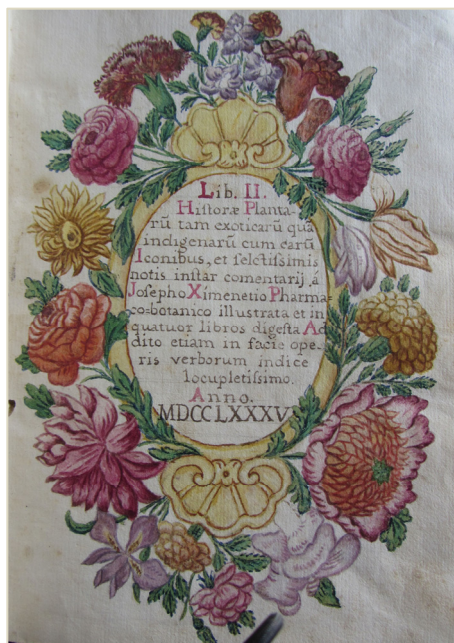 Lib. II.
Historæ Planta-
rũ tam exoticarũ quã
indigenarũ cum earũ
Iconibus, et selectissimis
notis instar comentarij, á
Josepho Ximenetio Pharma-
co-botanico illustrata et in
quatuor libros digesta Ad
dito etiam in facie ope-
ris verborum indice
locupletissimo.
Anno.
MDCCLXXXV